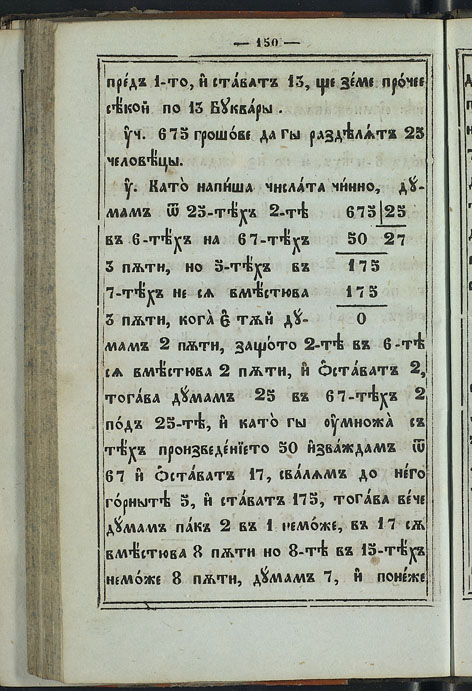 — 150 —
пре́дъ 1-то, и҆ ста́ватъ 13, ще зе́ме про́чее
сѣ́кой по 13 Бꙋква́ры .
Ѹ҆ч. 675 грошо́ве да гы раздѣлѧ́тъ 25
человѣ́цы.
Ѹ҆. Като̀ напи́ша числата чи́нно, дꙋ́-
мамъ ѿ 25-тѣ́хъ 2-тѣ 675 | 25
въ 6-тѣ́хъ на 67-тѣ́хъ 50 27
3 пѫ́ти, но 5-тѣ́хъ въ 175
7-тѣ́хъ не сѧ вмѣ́стюва 175
3 пѫ́ти, кога̀ є҆ тѫ́й дꙋ́- 0
мамъ 2 пѫ́ти, защо́то 2-тѣ въ 6-тѣ
сѧ вмѣ́стюва 2 пѫ́ти, и҆ ѻ҆ста́ватъ 2,
тога́ва дꙋ́мамъ 25 въ 67-тѣ́хъ 2
по́дъ 25-тѣ, и҆ като̀ гы ѹ҆множа̀ съ
тѣ́хъ произведе́нїето 50 и҆зва́ждамъ ѿ
67 и҆ ѻ҆ста́ватъ 17, сва́лямъ до не́го
го́рнытѣ 5, и҆ ста́ватъ 175, тога́ва ве́че
дꙋ́мамъ па́къ 2 въ 1 немо́же, въ 17 сѧ
вмѣ́стюва 8 пѫ́ти но 8-тѣ въ 15-тѣ́хъ
немо́же 8 пѫ́ти, дꙋ́мамъ 7, и҆ поне́же